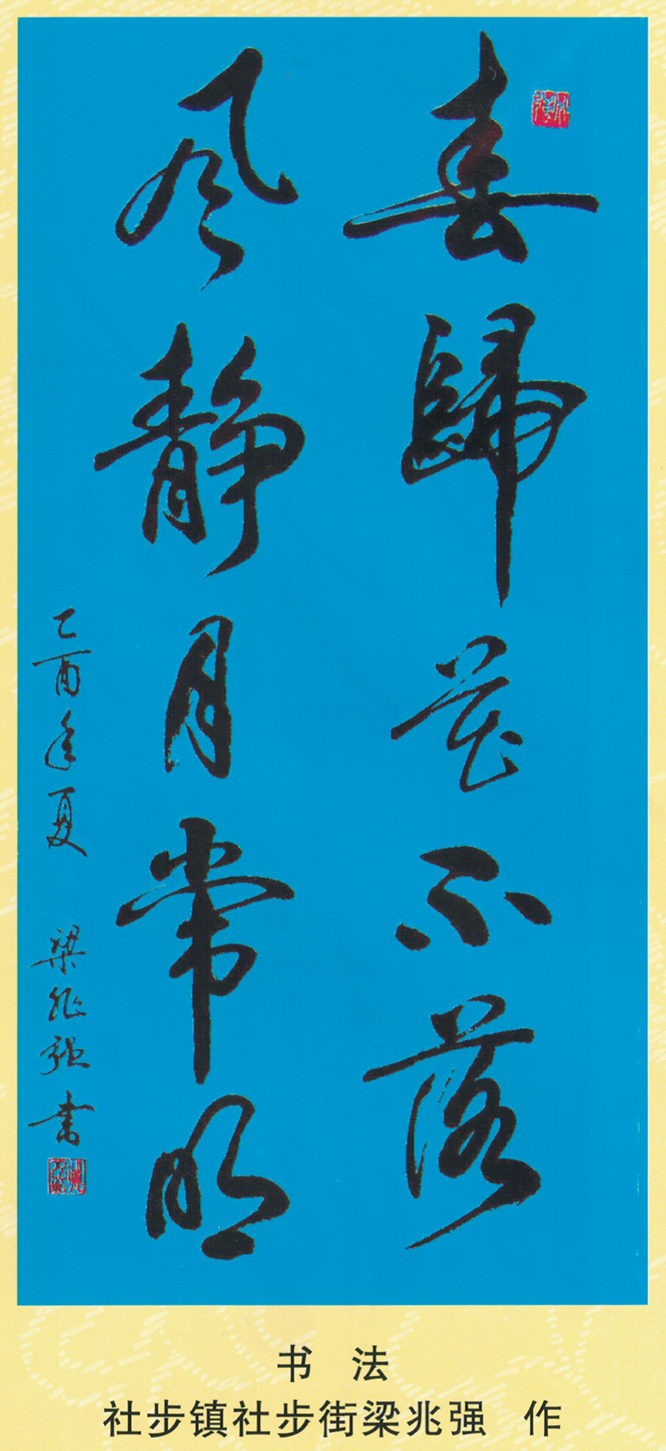 春歸花不落
风静月常明
乙酉年夏 梁兆强書
书 法
社步镇社步街梁兆强 作